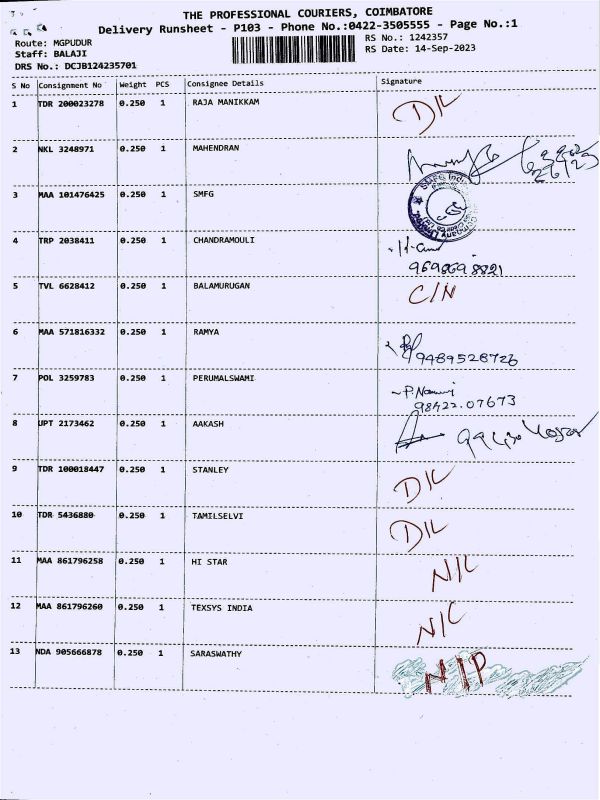 THE PROFESSIONAL COURIERS, COIMBATORE
Delivery Runsheet - P103 - Phone No.:0422-3505555 - Page No.:1
Route: MGPUDUR
Staff: BALAJI
DRS No.: DCJB124235701
RS No.: 1242357
RS Date: 14-Sep-2023
S No Consignment No Weight PCS Consignee Details Signature
1 TDR 200023278 0.250 1 RAJA MANIKKAM D/L
2 NKL 3248971 0.250 1 MAHENDRAN
3 MAA 101476425 0.250 1 SMFG
4 TRP 2038411 0.250 1 CHANDRAMOULI
5 TVL 6628412 0.250 1 BALAMURUGAN C/N
6 MAA 571816332 0.250 1 RAMYA 9489528726
7 POL 3259783 0.250 1 PERUMALSWAMI
98422.07673
8 UPT 2173462 0.250 1 AAKASH
9 TDR 100018447 0.250 1 STANLEY D/L
10 TDR 5436880 0.250 1 TAMILSELVI D/L
11 MAA 861796258 0.250 1 HI STAR N/C
12 MAA 861796260 0.250 1 TEXSYS INDIA N/C
13 NDA 905666878 0.250 1 SARASWATHY N/P